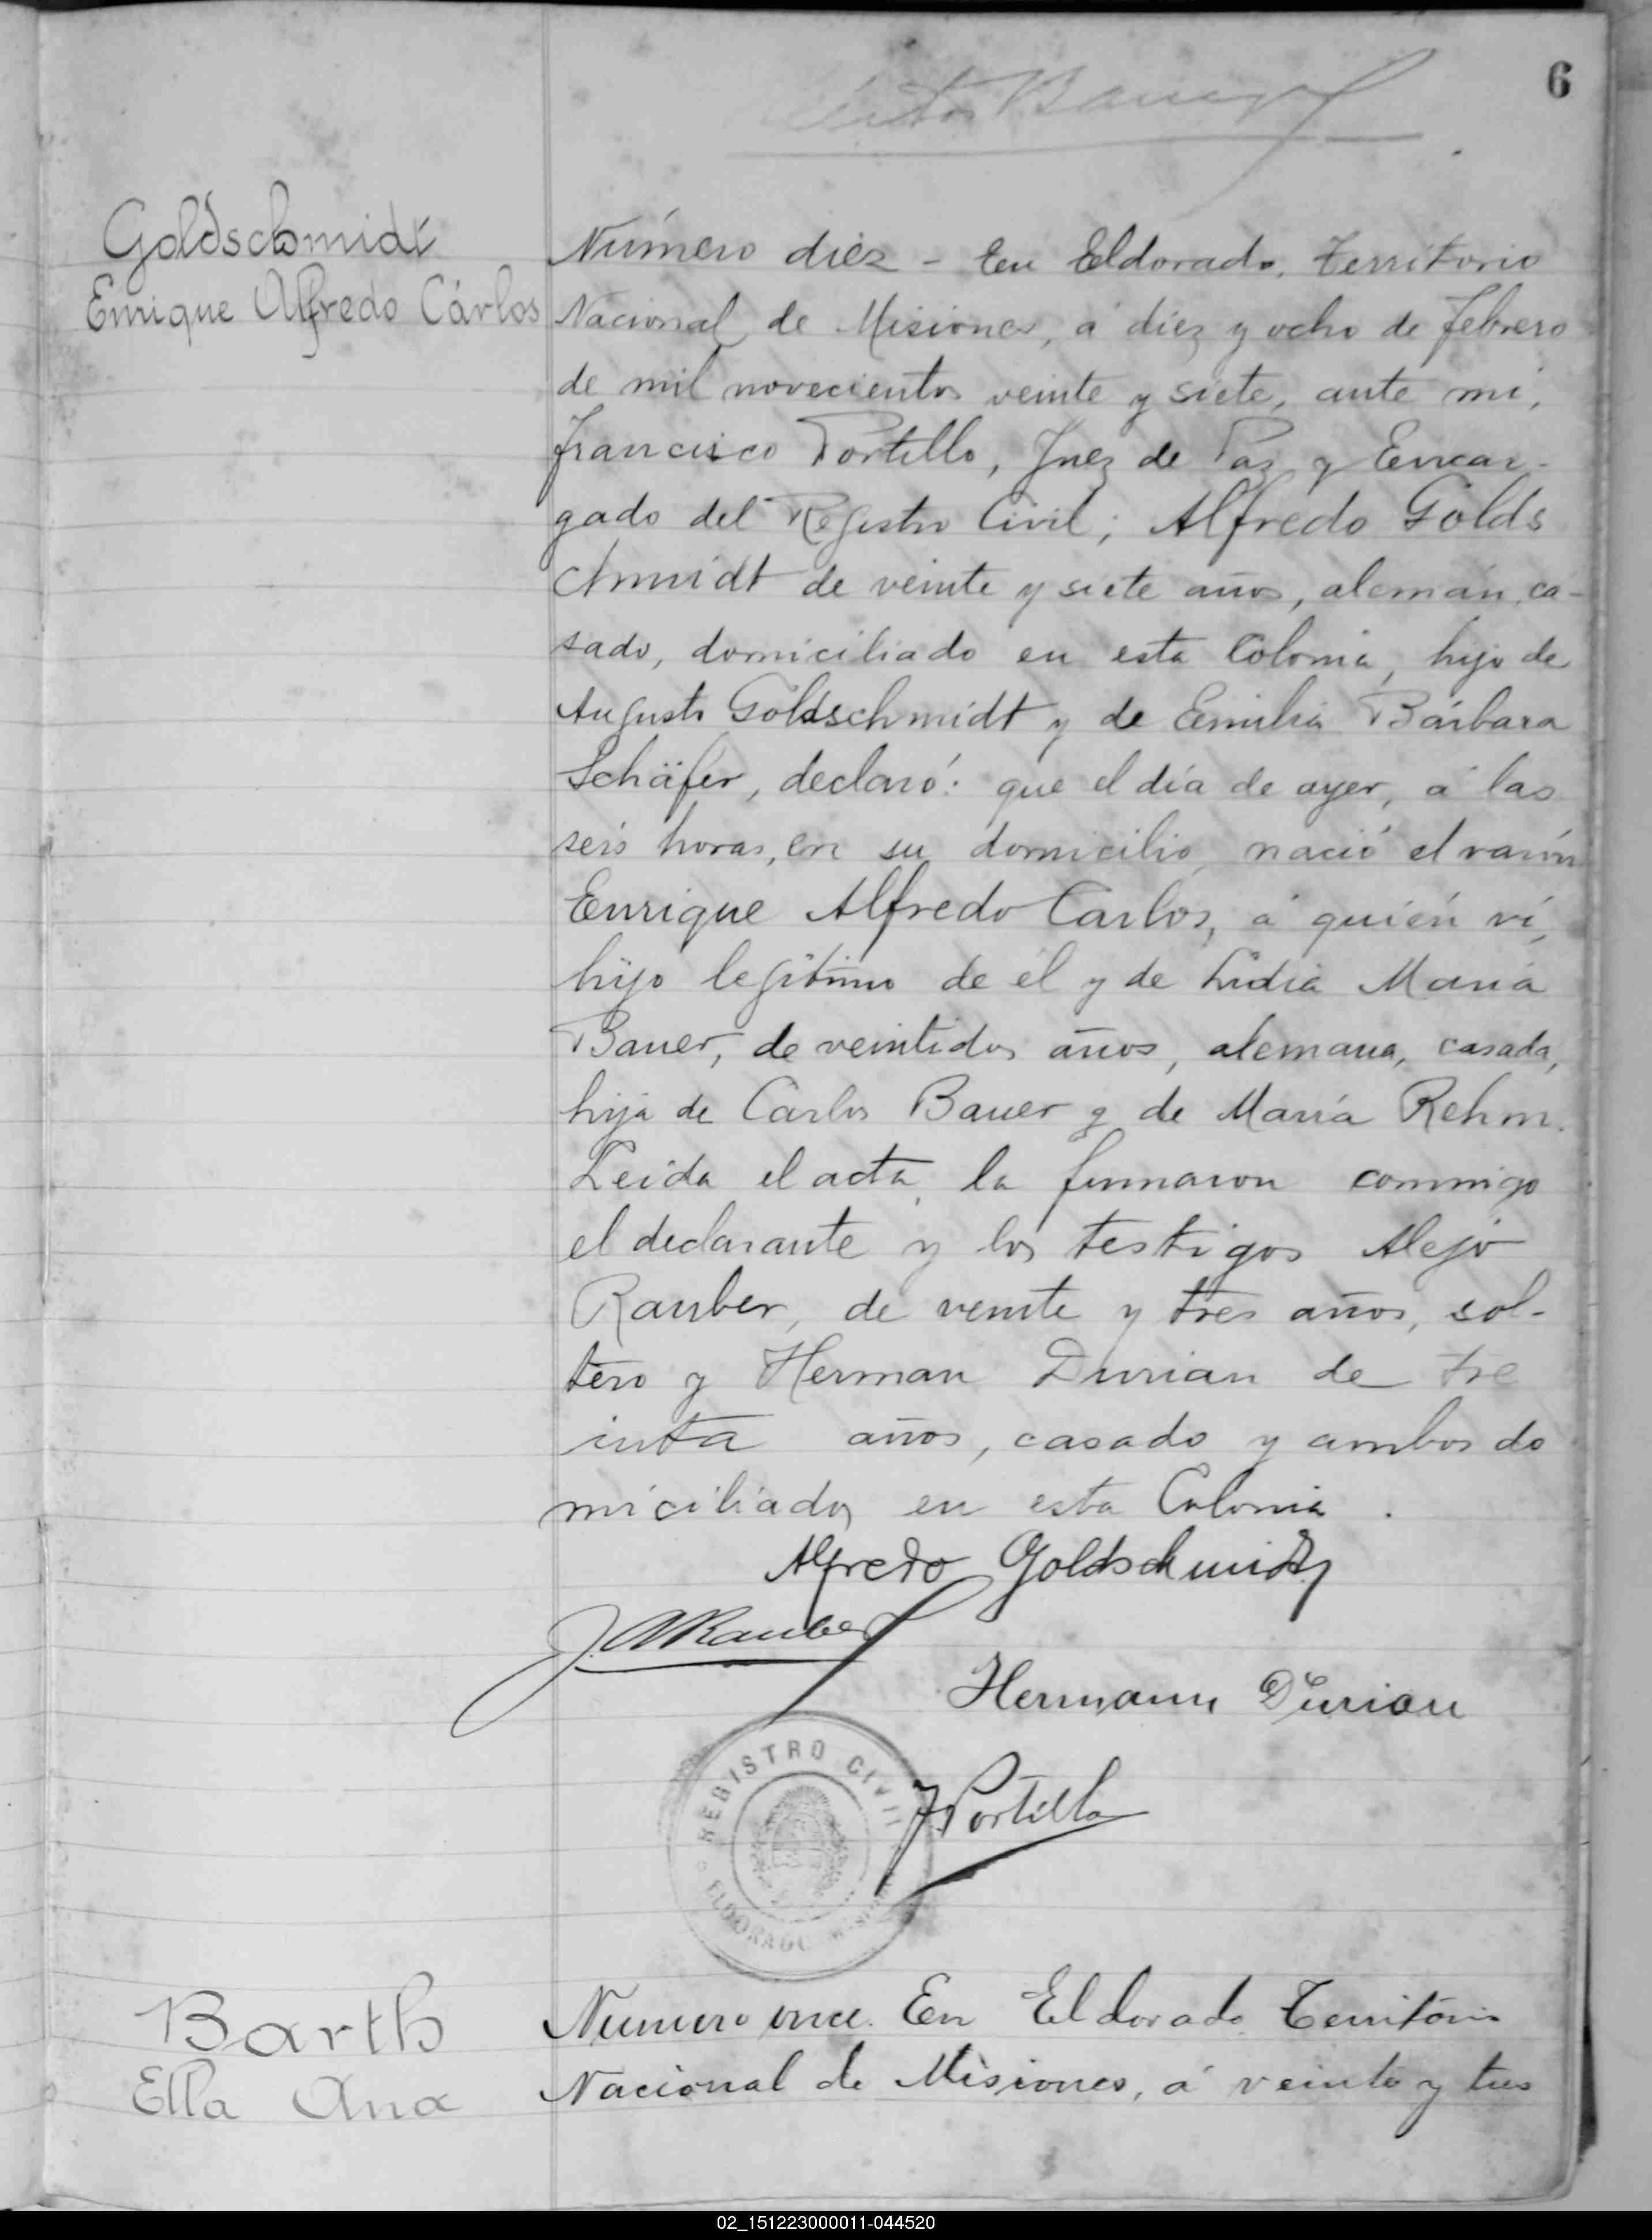 6
Goldschmidt
Enrique Alfredo Cárlos
Número diez - En Eldorado, Territorio
Nacional de Misiones, á diez y ocho de febrero
de mil novecientos veinte y siete, ante mí,
Francisco Portillo, Juez de Paz y Encar-
gado del Registro Civil; Alfredo Golds
chmidt de veinte y siete años, alemán, ca-
sado, domiciliado en esta Colonia, hijo de
Augusto Goldschmidt y de Emilia Bárbara
Schäfer, declaró: que el día de ayer, á las
seis horas, en su domicilio, nació el varón
Enrique Alfredo Carlos, á quién ví,
hijo legítimo de él y de Lidia María
Bauer, de veintidos años, alemana, casada,
hija de Carlos Bauer y de María Rehm.
Leida el acta, la firmaron conmigo
el declarante y los testigos Alejo
Rauber, de veinte y tres años, sol-
tero y Herman Durian de tre
inta años, casado y ambos do
miciliados en esta Colonia.
Alfredo Goldschmidt
J. A Rauber
Hermann Durian
REGISTRO CIVIL
ELDORADO MISIONES
F Portillo
Barth
Ella Ana
Número once. En Eldorado Territorio
Nacional de Misiones, á veinte y tres
02_151223000011-044520